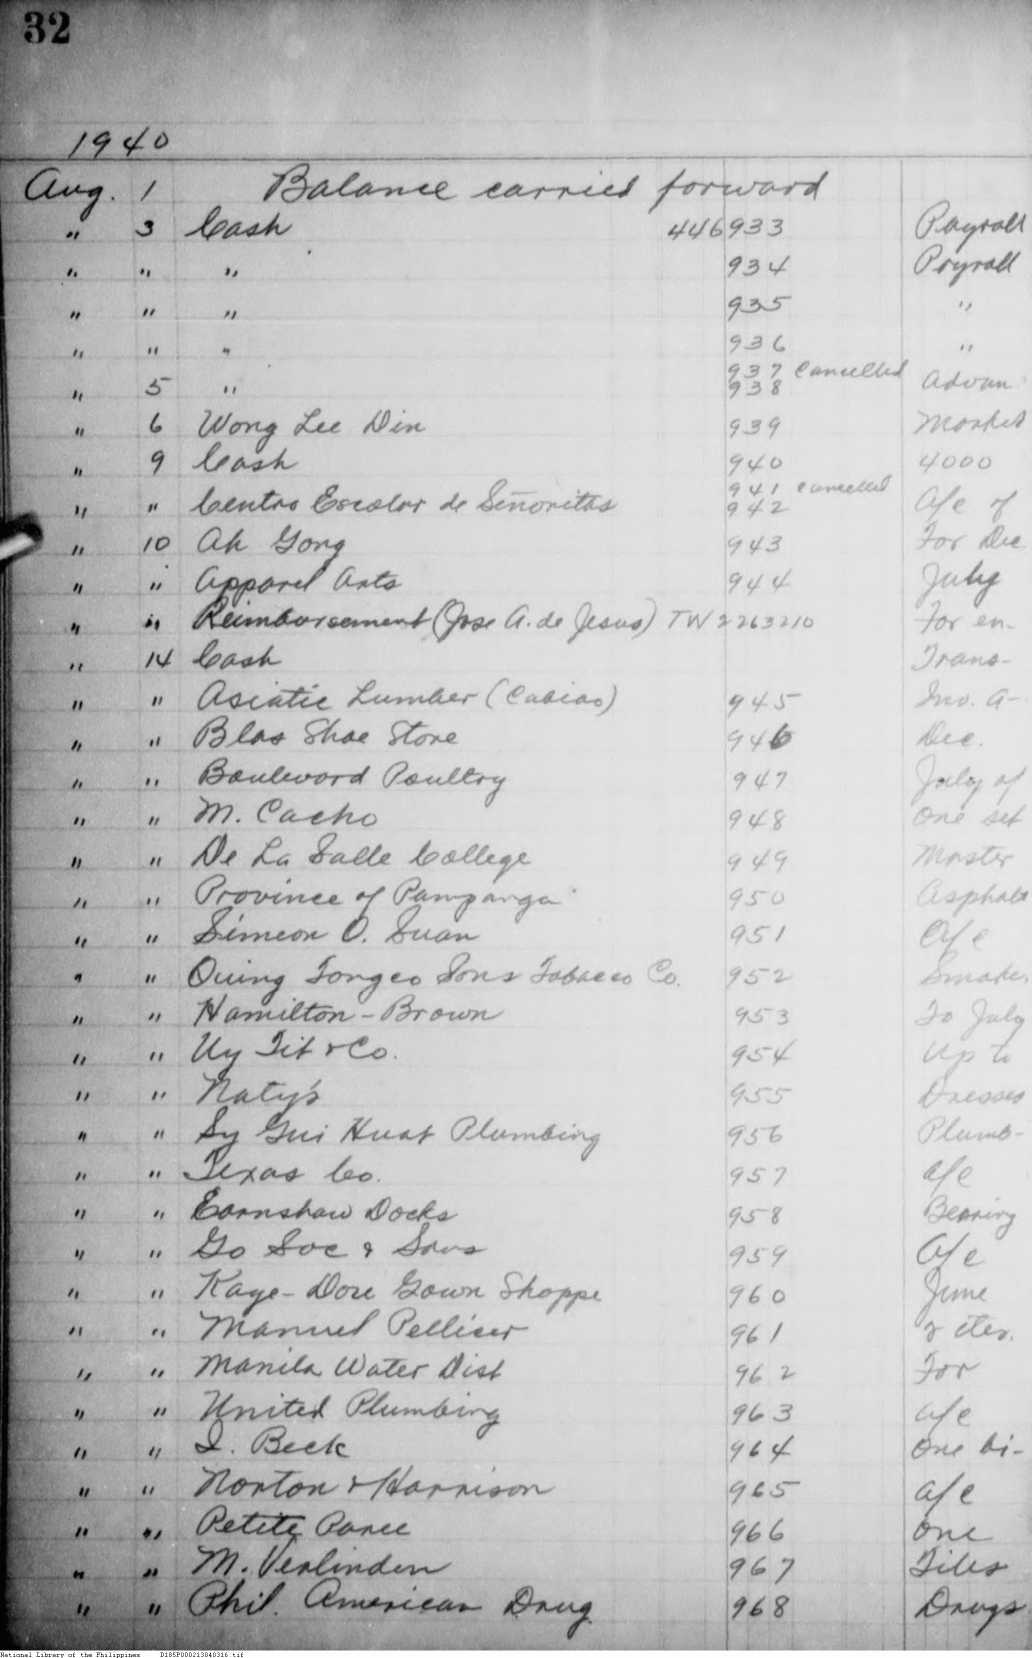 32
1940
Aug. 1 Balance carried forward
" 3 Cash 446933 Payroll
" " " 934 Payroll
" " " 935 "
" " " 936 "
937 Cancelled
" 5 " 938 Advan
" 6 Wong Lee Din 939 Market
" 9 Cash 940 4000
941 Cancelled
" " Centro Escolar de Señoritas 942 a/c of
" 10 Ah Gong 943 For Dec
" " Apparel Arts 944 July
" " Reimbursement (Jose A. de Jesus) TW 2263210 For en-
" 14 Cash Trans-
" " Asiatic Lumber (Cabiao) 945 Inv. a-
" " Blas Shoe Store 946 Dec.
" " Boulevard Poultry 947 July of
" " M. Cacho 948 One set
" " De La Salle College 949 Master
" " Province of Pampanga 950 Asphalt
" " Simeon O. Suan 951 a/c
" " Quing Tongco Sons Tobacco Co. 952 Smokes
" " Hamilton-Brown 953 To July
" " Uy Tit & Co. 954 Up to
" " Naty's 955 Dresses
" " Sy Gui Huat Plumbing 956 Plumb-
" " Texas Co. 957 a/c
" " Earnshaw Docks 958 Bearing
" " Go Soc & Sons 959 a/c
" " Kaye-Dore Gown Shoppe 960 June
" " Manuel Pellicer 961 2 ites.
" " Manila Water Dist 962 For
" " United Plumbing 963 a/c
" " I. Beck 964 One bi-
" " Norton & Harrison 965 a/c
" " Petite Paree 966 One
" " M. Verlinden 967 Tiles
" " Phil. American Drug 968 Drugs
National Library of the Philippines D185P000213840316.tif